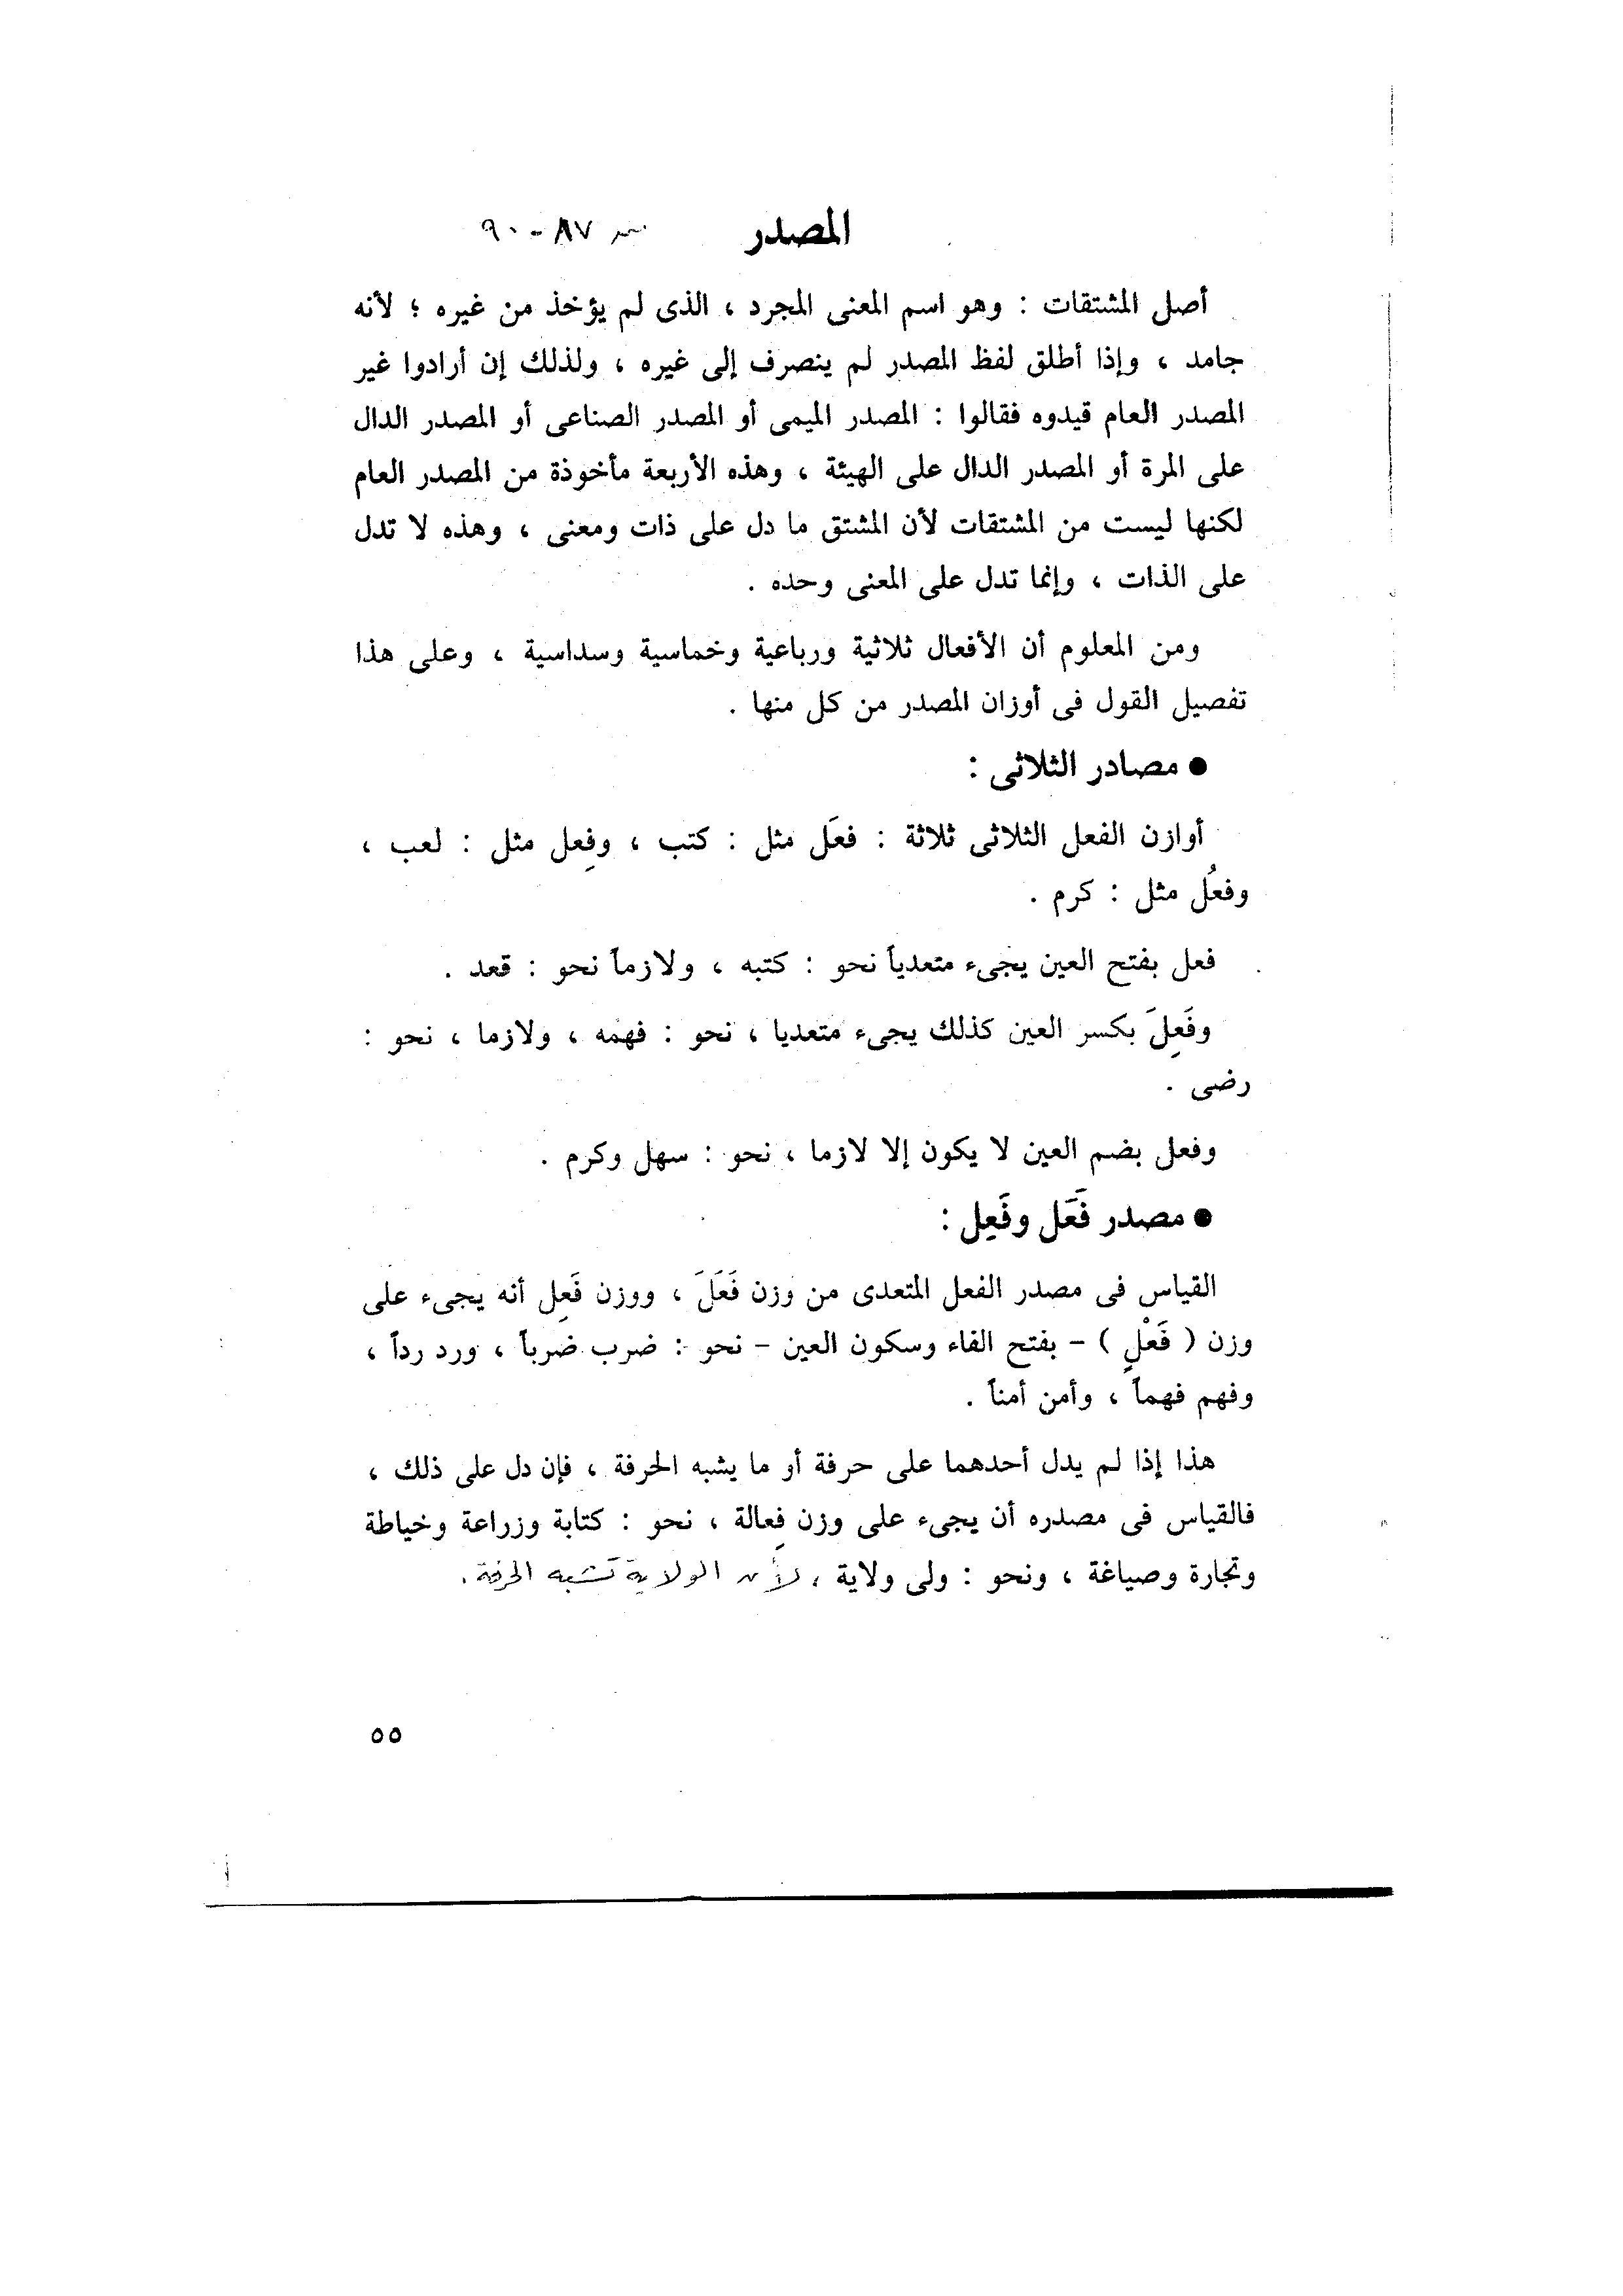 المصدر من ٨٧ - ٩٠
أصل المشتقات : وهو اسم المعنى المجرد ، الذى لم يؤخذ من غيره ؛ لأنه
جامد ، وإذا أطلق لفظ المصدر لم ينصرف إلى غيره ، ولذلك إن أرادوا غير
المصدر العام قيدوه فقالوا : المصدر الميمى أو المصدر الصناعى أو المصدر الدال
على المرة أو المصدر الدال على الهيئة ، وهذه الأربعة مأخوذة من المصدر العام
لكنها ليست من المشتقات لأن المشتق ما دل على ذات ومعنى ، وهذه لا تدل
على الذات ، وإنما تدل على المعنى وحده .
ومن المعلوم أن الأفعال ثلاثية ورباعية وخماسية وسداسية ، وعلى هذا
تفصيل القول فى أوزان المصدر من كل منها .
● مصادر الثلاثى :
أوازن الفعل الثلاثى ثلاثة : فعَل مثل : كتب ، وفعِل مثل : لعب ،
وفعُل مثل : كرم .
فعل بفتح العين يجىء متعدياً نحو : كتبه ، ولازماً نحو : قعد .
وفَعِلَ بكسر العين كذلك يجىء متعديا ، نحو : فهمه ، ولازما ، نحو :
رضى .
وفعل بضم العين لا يكون إلا لازما ، نحو : سهل وكرم .
● مصدر فَعَل وفَعِل :
القياس فى مصدر الفعل المتعدى من وزن فَعَلَ ، ووزن فَعِل أنه يجىء على
وزن ( فَعْلٍ ) - بفتح الفاء وسكون العين - نحو : ضرب ضرباً ، ورد رداً ،
وفهم فهماً ، وأمن أمناً .
هذا إذا لم يدل أحدهما على حرفة أو ما يشبه الحرفة ، فإن دل على ذلك ،
فالقياس فى مصدره أن يجىء على وزن فِعالة ، نحو : كتابة وزراعة وخياطة
وتجارة وصياغة ، ونحو : ولى ولاية ، لأن الولاية تشبه الحرفة .
٥٥